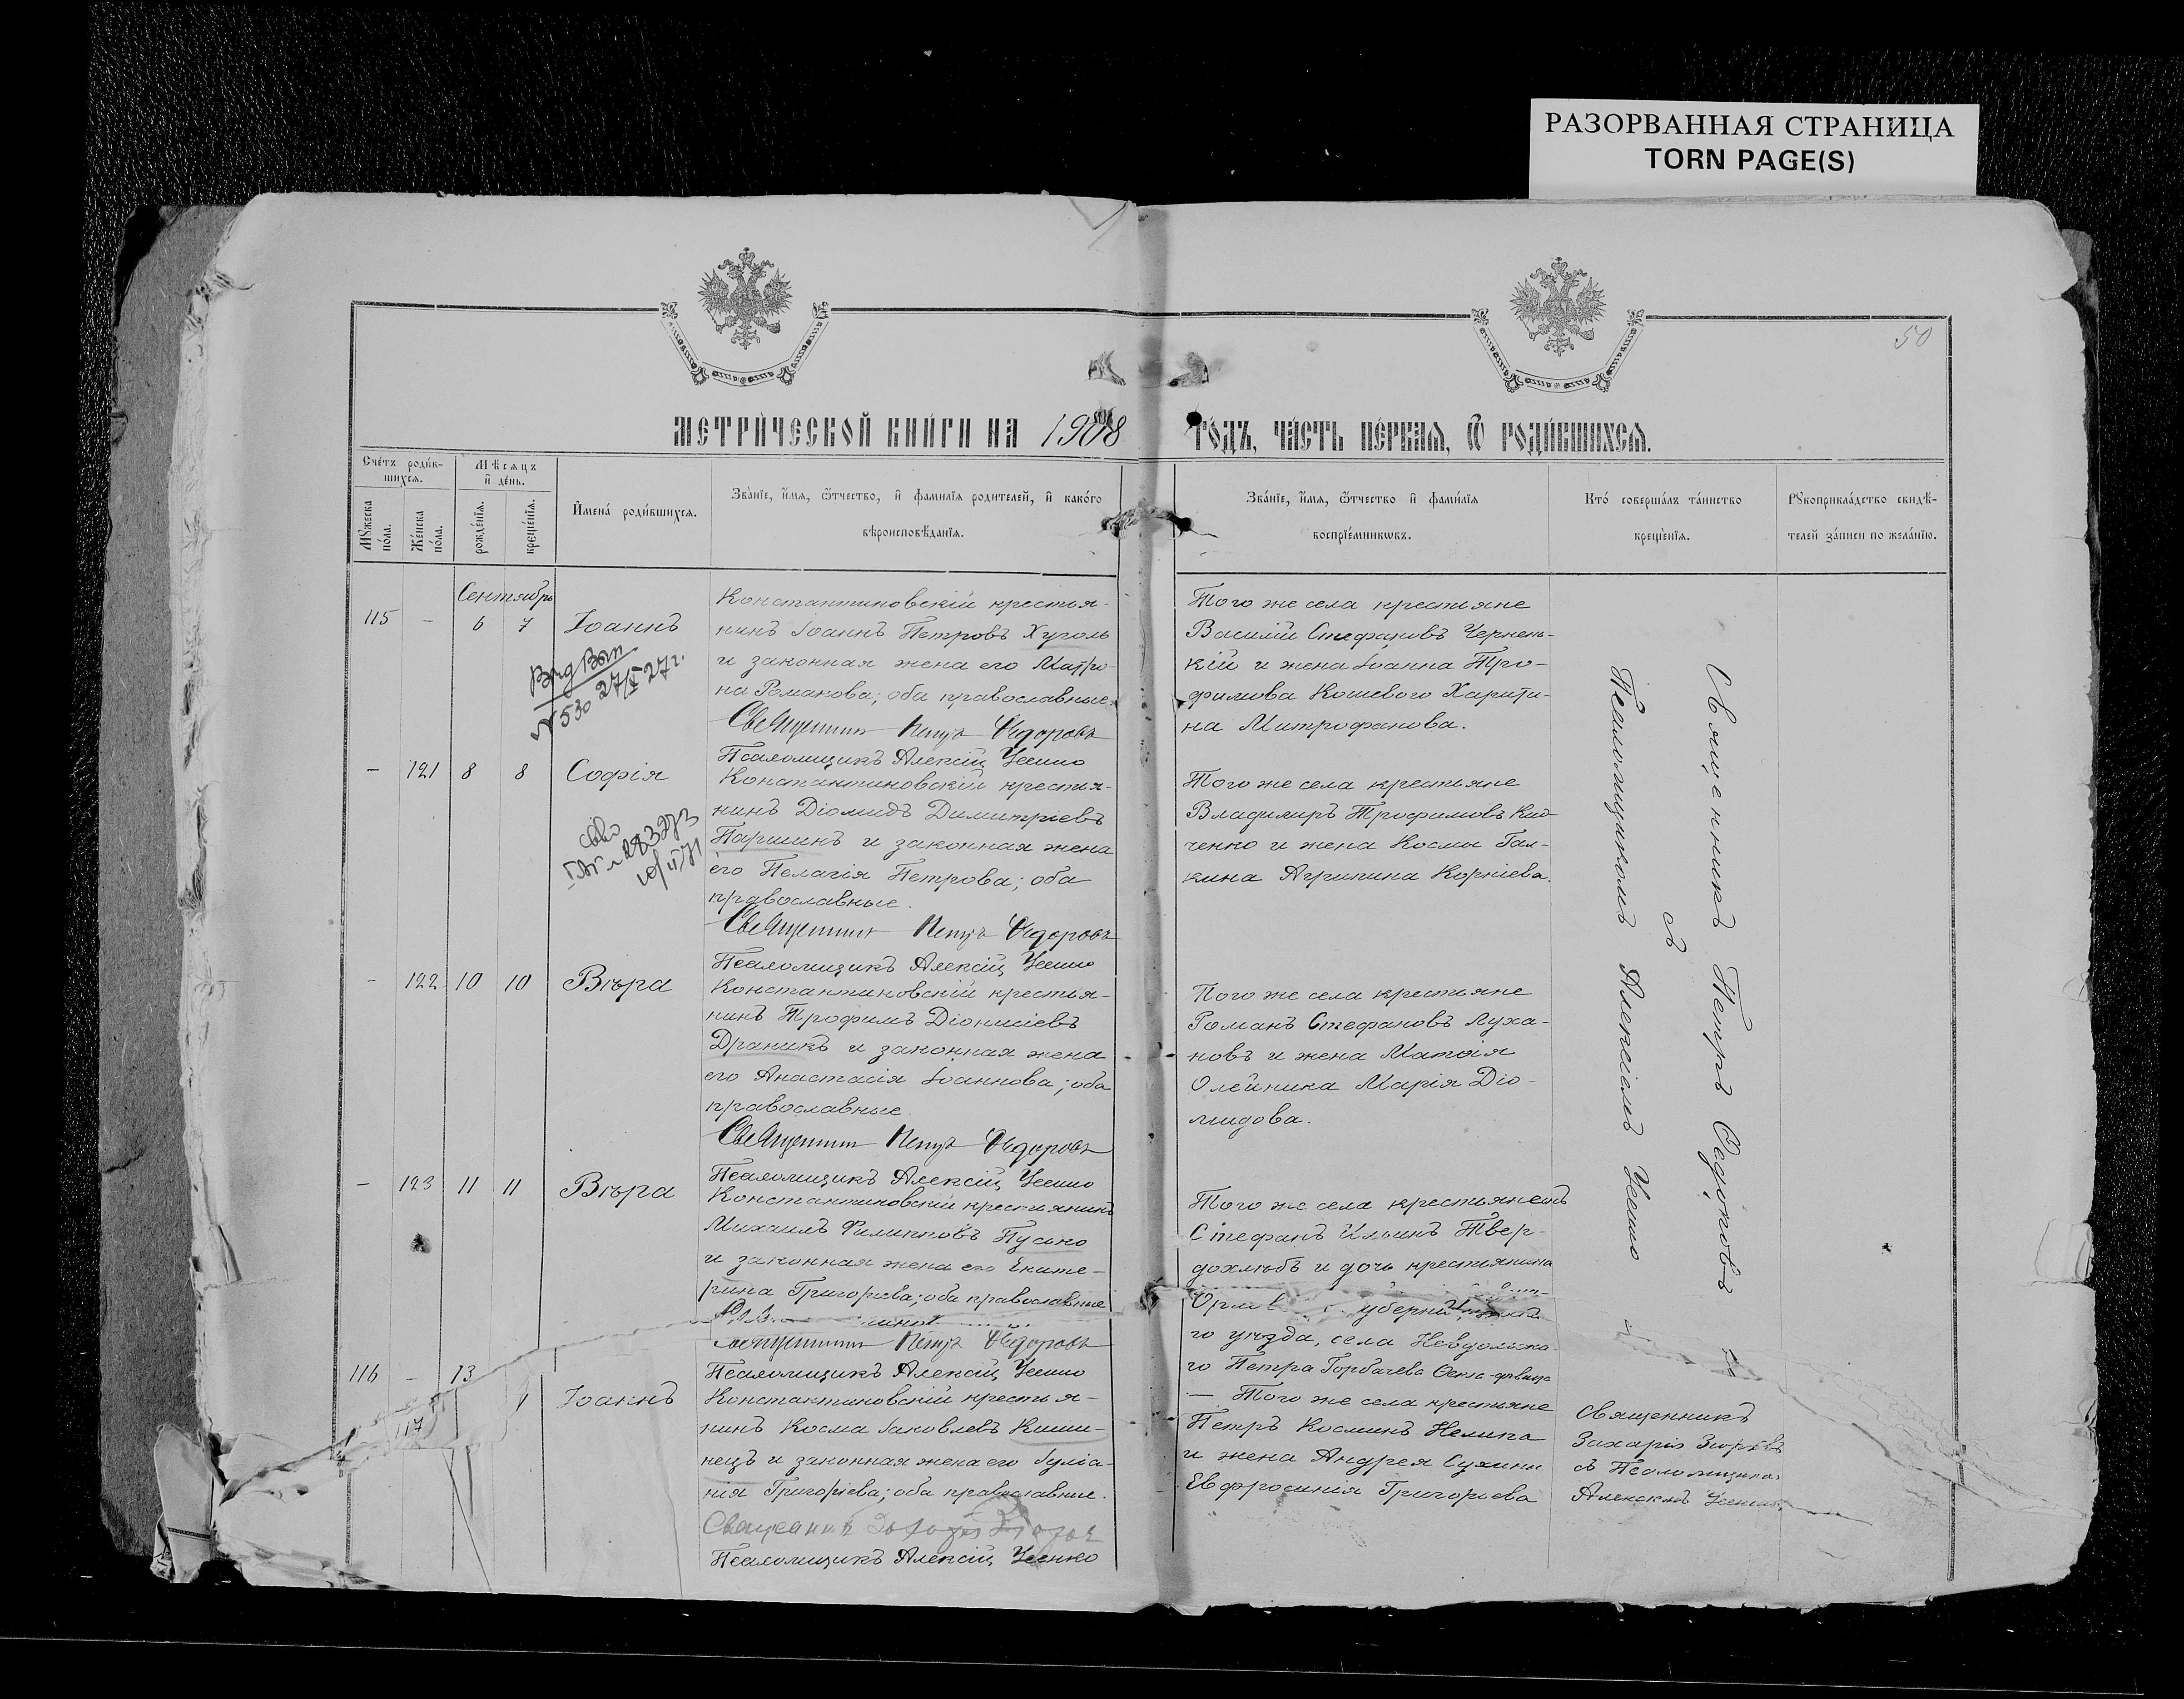 РАЗОРВАННАЯ СТРАНИЦА
TORN PAGE(S)
50
МЕТРИ́ЧЕСКОЙ КНИ́ГИ НА 1908
ГО́ДЪ, ЧА́СТЬ ПЕ́РВАѦ, Ѿ РОДИ́ВШИХСѦ.
Сче́тъ роди́в-
шихсѧ.
Мѣ́сѧцъ
и҆ де́нь.
Мꙋ́жеска
по́ла.
Же́нска
по́ла.
рожде́нїѧ.
креще́нїѧ.
И҆мена́ роди́вшихсѧ.
Зва́нїе, и҆́мѧ, ѻ҆́тчество, и҆ фами́лїѧ роди́телей, и҆ како́гѡ
вѣроисповѣ́данїѧ.
Зва́нїе, и҆́мѧ, ѻ҆́тчество и҆ фами́лїѧ
воспрїе́мникѡвъ.
Кто̀ соверша́лъ та́инство
креще́нїѧ.
Рꙋкоприкла́дство свидѣ́-
телей за́писи по жела́нїю.
Сентябрь
115 - 6 7 Іоаннъ
№ 530 27/V 27 г.
Константиновскій крестья-
нинъ Іоаннъ Петровъ Хуголь
и законная жена его Матро-
на Романова; оба православные.
Священникъ Петръ Ѳедоровъ
Псаломщикъ Алексій Уешко
Того же села крестьяне
Василій Стефановъ Чернень-
кій и жена Іоанна Тро-
фимова Кошевого Харити-
на Митрофанова.
- 121 8 8 Софія
Константиновскій крестья-
нинъ Діомидъ Димитріевъ
Паршинъ и законная жена
его Пелагія Петрова; оба
православные.
Священникъ Петръ Ѳедоровъ
Псаломщикъ Алексій Уешко
Того же села крестьяне
Владимиръ Трофимовъ Кид-
ченко и жена Космы Гал-
кина Агрипина Корніева.
- 122 10 10 Вѣра
Константиновскій крестья-
нинъ Трофимъ Діонисіевъ
Драникъ и законная жена
его Анастасія Іоаннова; оба
православные.
Священникъ Петръ Ѳедоровъ
Псаломщикъ Алексій Уешко
Того же села крестьяне
Романъ Стефановъ Луха-
новъ и жена Матѳія
Олейника Марія Діо-
мидова.
- 123 11 11 Вѣра
Константиновскій крестьянинъ
Михаилъ Филипповъ Пусько
и законная жена его Екате-
рина Григорьева; оба православные
Священникъ Петръ Ѳедоровъ
Псаломщикъ Алексій Уешко
Того же села крестьянинъ
Стефанъ Ильинъ Твер-
дохлѣбъ и дочь крестьянина
го уѣзда, села Невдольска-
го Петра Горбачева Ѳекла-дѣвица
Священникъ Петръ Ѳедоровъ
съ
Псаломщикомъ Алексіемъ Уешко
116 - 13
117
Іоаннъ
Константиновскій крестья-
нинъ Косма Іаковлевъ Киши-
нецъ и законная жена его Іуліа-
нія Григорьева; оба православные.
Священникъ
Псаломщикъ Алексій Уешко
— Того же села крестьяне
Петръ Косминъ Нелипа
и жена Андрея
Евфросинія Григорьева
Священникъ
Захарія
съ Псаломщикомъ
Алексіемъ